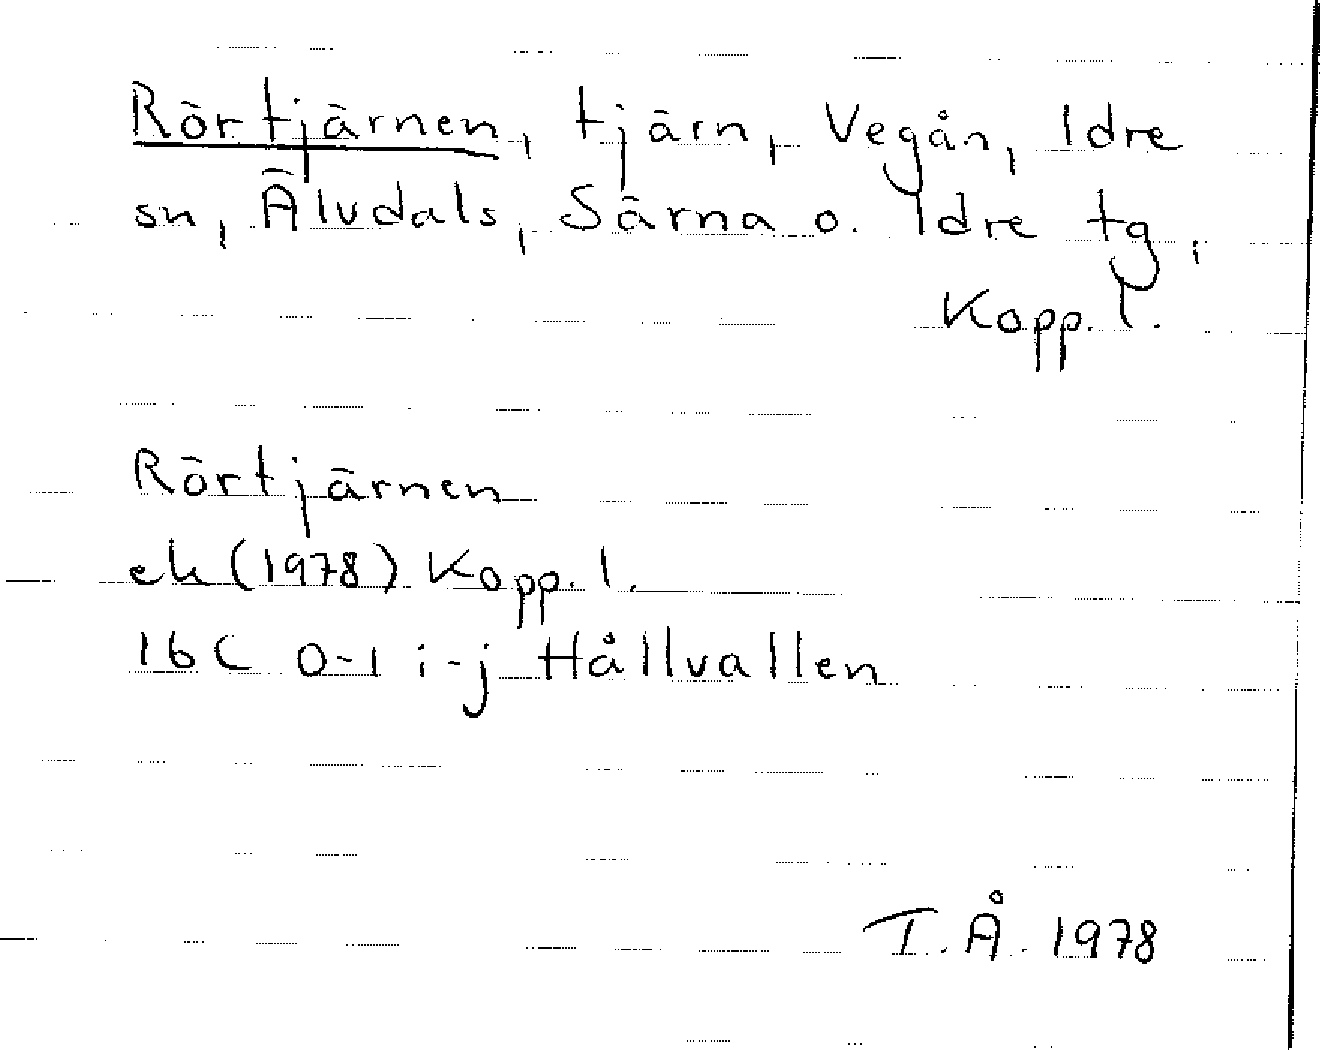 Rörtjärnen, tjärn, Vegån, Idre
sn, Älvdals, Särna o. Idre tg,
Kopp. l.
Rörtjärnen
ek (1978) Kopp. l.
16 C 0-1 i-j Hållvallen
T. Å. 1978